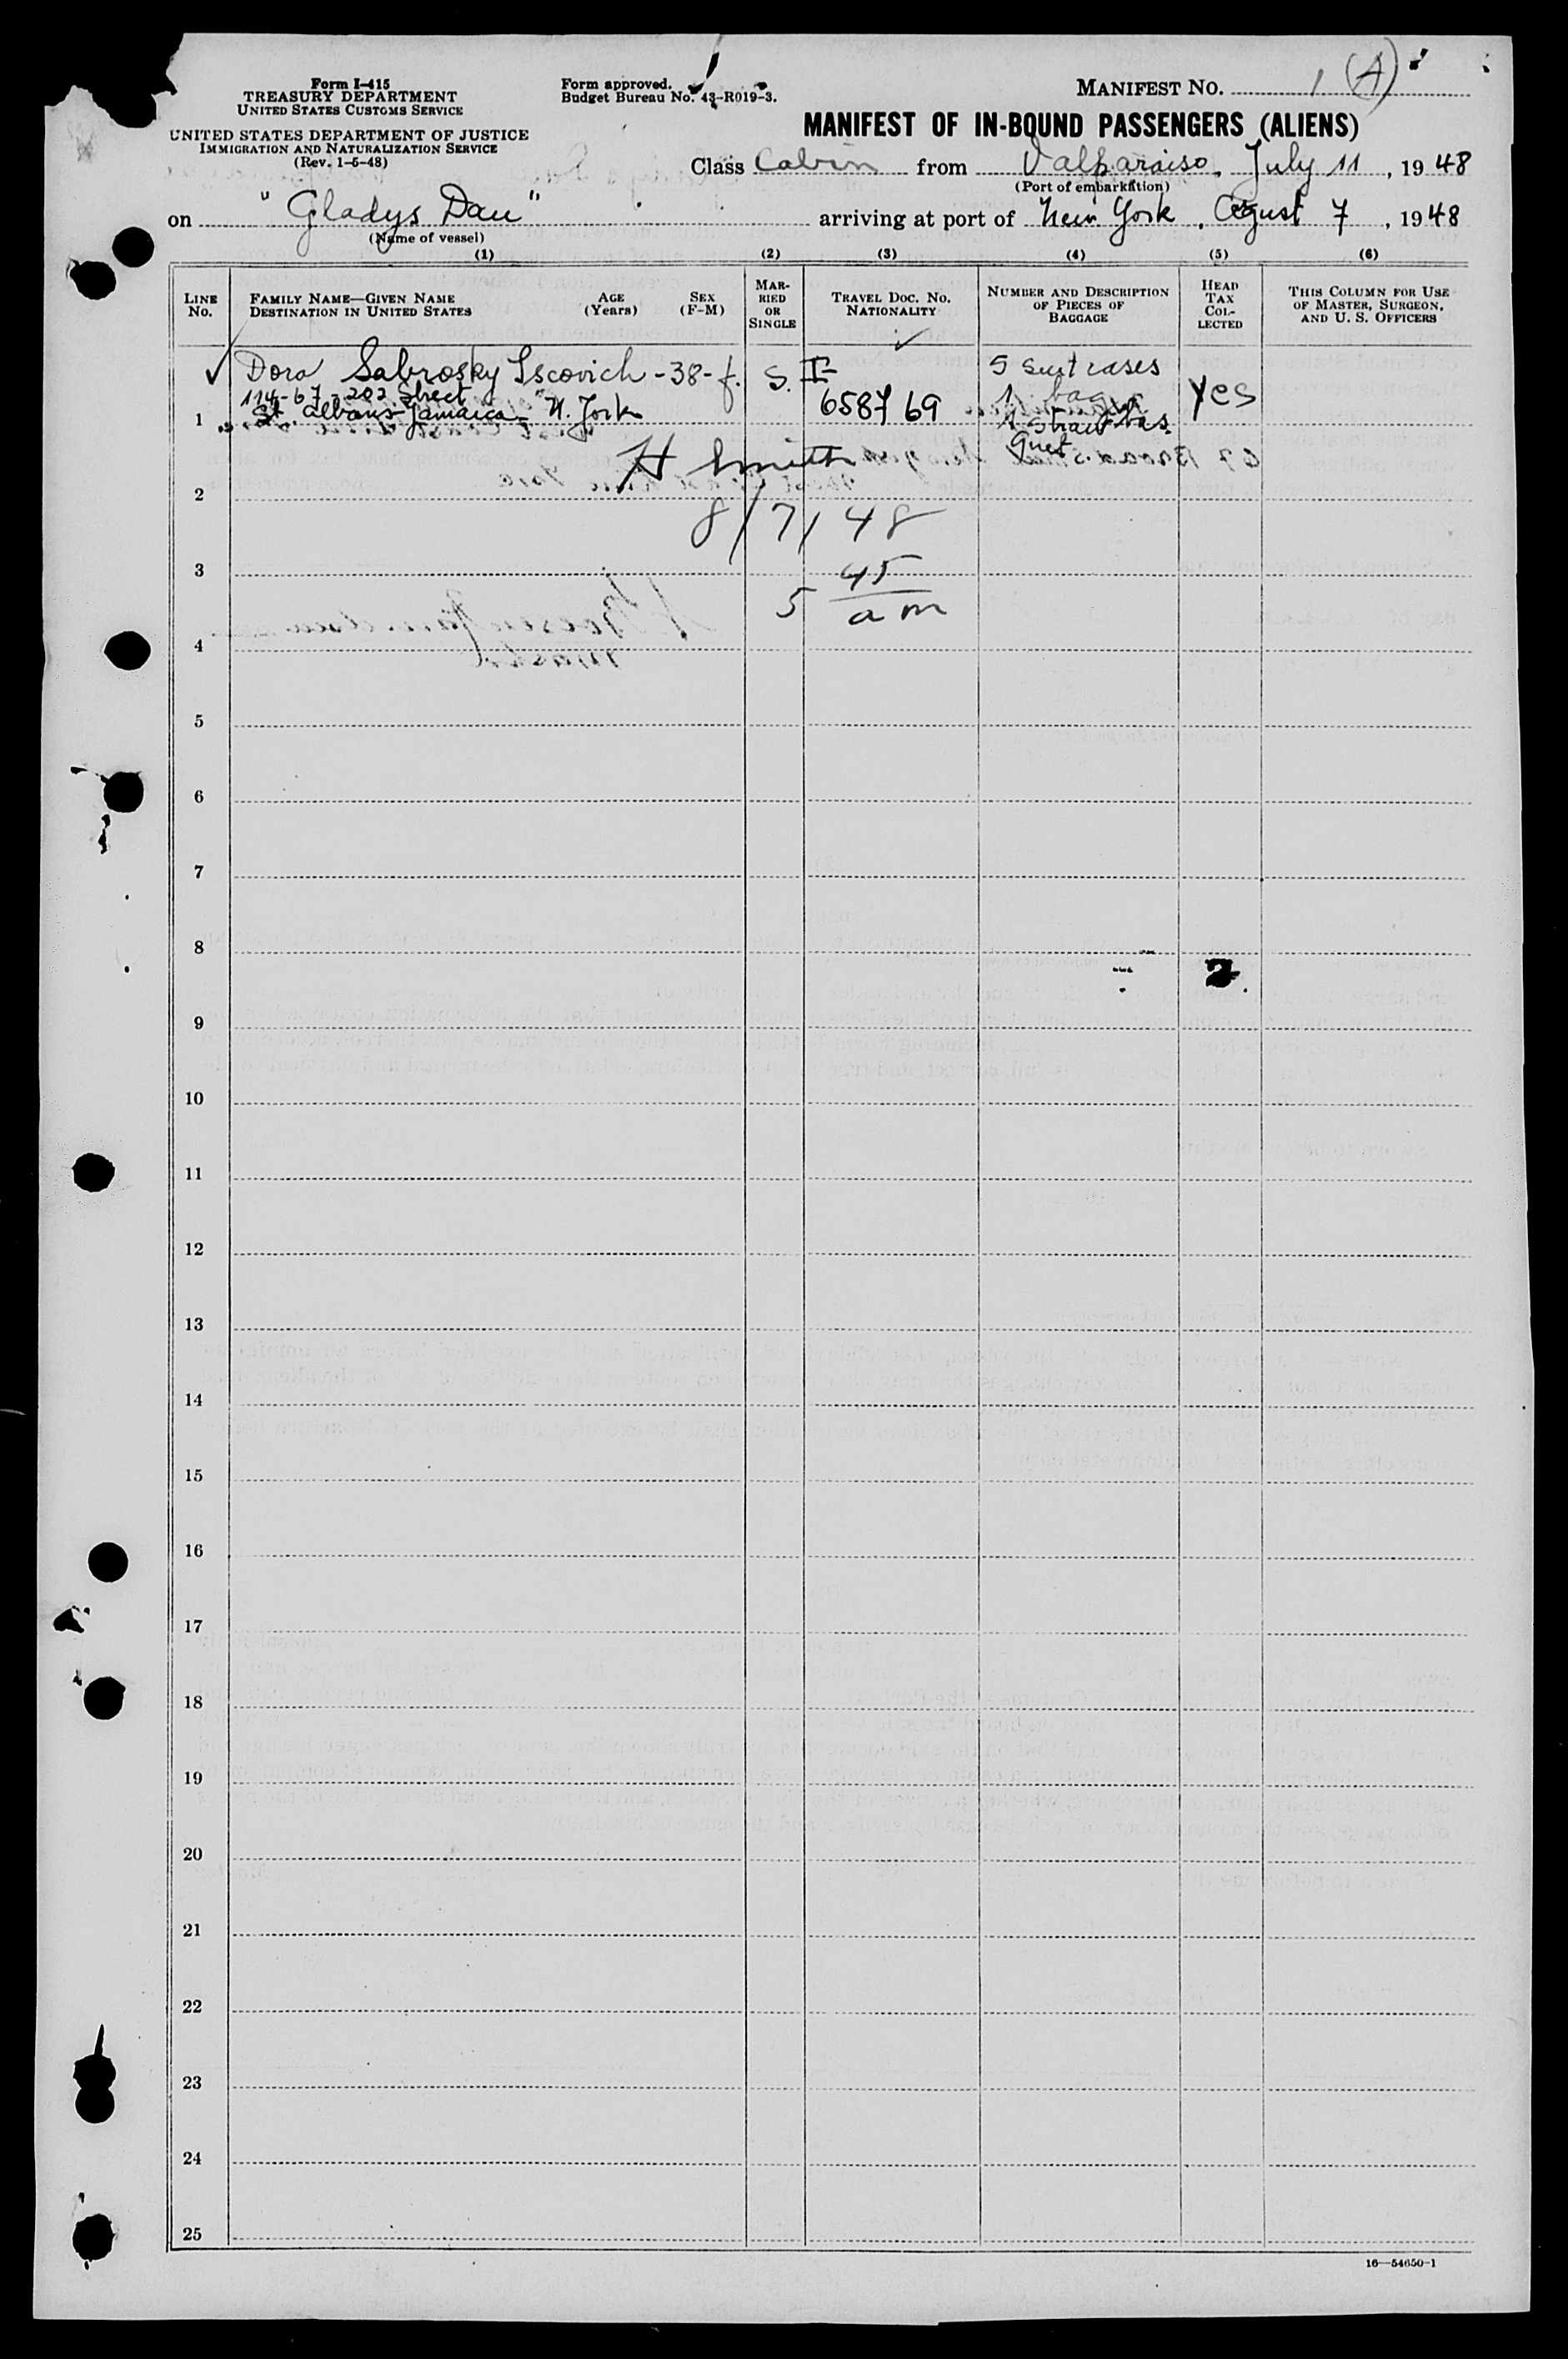 Form I-415
TREASURY DEPARTMENT
UNITED STATES CUSTOMS SERVICE
UNITED STATES DEPARTMENT OF JUSTICE
IMMIGRATION AND NATURALIZATION SERVICE
(Rev. 1-5-48)
Form approved.
Budget Bureau No. 43-R019-3.
MANIFEST NO. 1 (A)
MANIFEST OF IN-BOUND PASSENGERS (ALIENS)
Class Cabin from Valparaiso, July 11, 1948
(Port of embarkation)
on "Gladys Dan" arriving at port of New York, August 7, 1948
(Name of vessel)
(1) (2) (3) (4) (5) (6)
LINE No.
FAMILY NAME—GIVEN NAME
DESTINATION IN UNITED STATES
AGE (Years)
SEX (F-M)
MARRIED OR SINGLE
TRAVEL DOC. NO.
NATIONALITY
NUMBER AND DESCRIPTION OF PIECES OF BAGGAGE
HEAD TAX COLLECTED
THIS COLUMN FOR USE OF MASTER, SURGEON, AND U. S. OFFICERS
Dora Sabrosky Iscovich - 38 - f. S. I- 5 suitcases yes
114-67-202 Street 658769 1 bag
1 St. Albans-Jamaica- N. York 1 straw
H Smith
2
8/7/48
3
5 45
am
4
5
6
7
8
2
9
10
11
12
13
14
15
16
17
18
19
20
21
22
23
24
25
16—54650-1